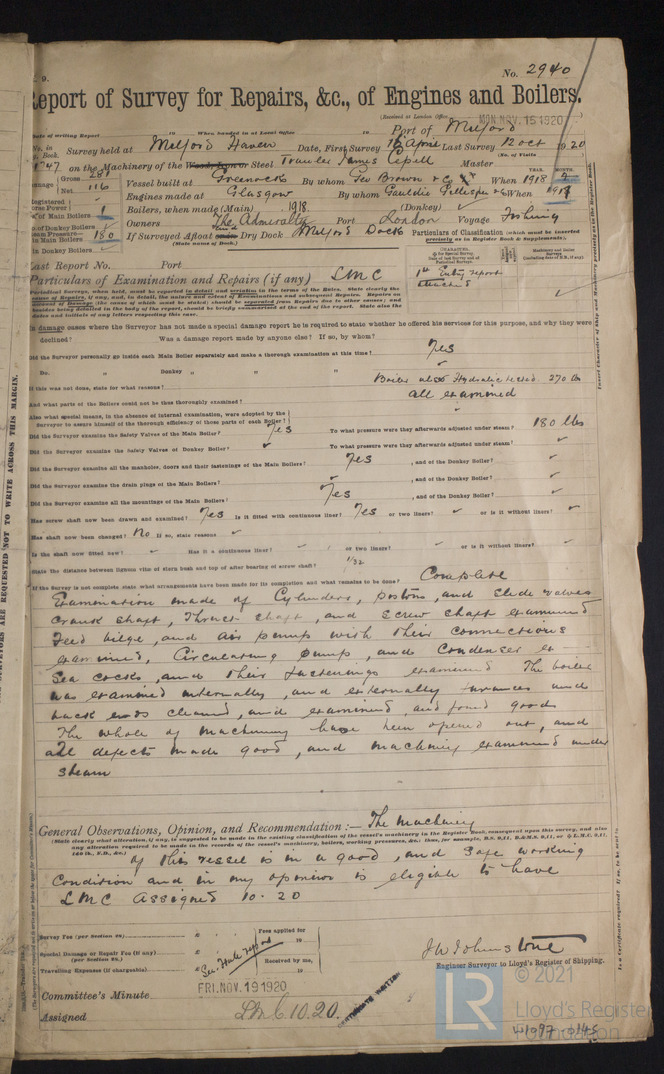 No. 2940
Report of Survey for Repairs, &c., of Engines and Boilers.
(Received at London Office MON. NOV. 15 1920
Date of writing Report 19 When handed in at Local Office 19 Port of Milford
Survey held at Milford Haven Date, First Survey 16 April Last Survey 12 oct 1920
(No. of Visits )
on the Machinery of the Wood, Iron or Steel Trawler James Master
Gross 281
Net 116
Vessel built at Greenock By whom Geo Brown & Co When 1918
YEAR. MONTH.
Engines made at Glasgow By whom Gauldie Gillespie & Co When 1918
Boilers, when made (Main) 1918 (Donkey) ✓
Owners The Admiralty Port London Voyage Fishing
If Surveyed Afloat or in Dry Dock Milford Dock
(State name of Dock.)
Particulars of Classification (which must be inserted
precisely as in Register Book & Supplements).
180
Last Report No. Port
Particulars of Examination and Repairs (if any) LMC
1st Entry report
attached
In damage cases where the Surveyor has not made a special damage report he is required to state whether he offered his services for this purpose, and why they were
declined? Was a damage report made by anyone else? If so, by whom?
Did the Surveyor personally go inside each Main Boiler separately and make a thorough examination at this time? Yes
Do. „ Donkey „ „ „
If this was not done, state for what reasons? Boiler also Hydraulic tested 270 lbs
And what parts of the Boilers could not be thus thoroughly examined? all examined
Also what special means, in the absence of internal examination, were adopted by the
Surveyor to assure himself of the thorough efficiency of those parts of each Boiler?
Did the Surveyor examine the Safety Valves of the Main Boiler? Yes To what pressure were they afterwards adjusted under steam? 180 lbs
Did the Surveyor examine the Safety Valves of Donkey Boiler? ✓ To what pressure were they afterwards adjusted under steam? ✓
Did the Surveyor examine all the manholes, doors and their fastenings of the Main Boilers? Yes , and of the Donkey Boiler? ✓
Did the Surveyor examine the drain plugs of the Main Boilers? ✓ , and of the Donkey Boiler? ✓
Did the Surveyor examine all the mountings of the Main Boilers? Yes , and of the Donkey Boiler? ✓
Has screw shaft now been drawn and examined? Yes Is it fitted with continuous liner? Yes or two liners? ✓ or is it without liners? ✓
Has shaft now been changed? No If so, state reasons ✓
Is the shaft now fitted new? ✓ Has it a continuous liner? ✓ or two liners? ✓ or is it without liners? ✓
State the distance between lignum vitæ of stern bush and top of after bearing of screw shaft? 1/32
If the Survey is not complete, state what arrangements have been made for its completion and what remains to be done? Complete
Examination made of Cylinders, pistons, and slide valves
crank shaft, Thrust shaft, and screw shaft examined
Feed bilge, and air pump with their connections
examined, Circulating pump, and condenser ex-
Sea cocks, and their fastenings examined The boiler
was examined internally, and externally furnaces and
back ends cleaned, and examined, and found good
The whole of machinery have been opened out, and
all defects made good, and machinery examined under
steam
General Observations, Opinion, and Recommendation :— The machinery
(State clearly what alteration, if any, is suggested to be made in the existing classification of the vessel's machinery in the Register Book, consequent upon this survey, and also
any alteration required to be made in the records of the vessel's machinery, boilers, working pressures, &c.; thus, for example, B.S. 9,11, B.&M.S. 9,11, or L.M.C. 9,11,
140 lb., F.D., &c.)
of this vessel is in a good, and safe working
condition and in my opinion is eligible to have
LMC assigned 10.20
Survey Fee (per Section 28)
Special Damage or Repair Fee (if any)
(per Section 28.)
Travelling Expenses (if chargeable)
Fees applied for
19
Received by me,
19
See Hull report
J W Johnstone
Engineer Surveyor to Lloyd's Register of Shipping.
Committee's Minute FRI. NOV. 19 1920
Assigned L.M.C. 10.20.
CERTIFICATE WRITTEN
NOT TO WRITE ACROSS THIS MARGIN.
© 2021
LR
Lloyd's Register
Foundation
W1097-0145